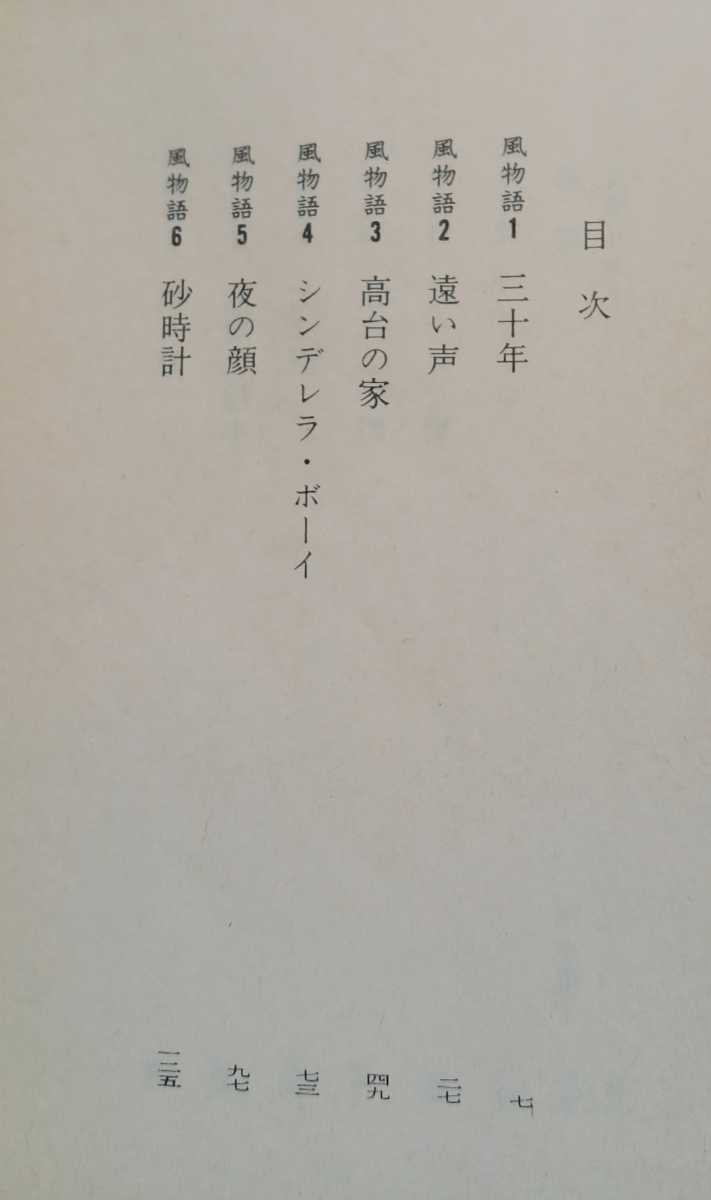 目次
風物語1 三十年 七
風物語2 遠い声 二七
風物語3 高台の家 四九
風物語4 シンデレラ・ボーイ 七三
風物語5 夜の顔 九七
風物語6 砂時計 一二五